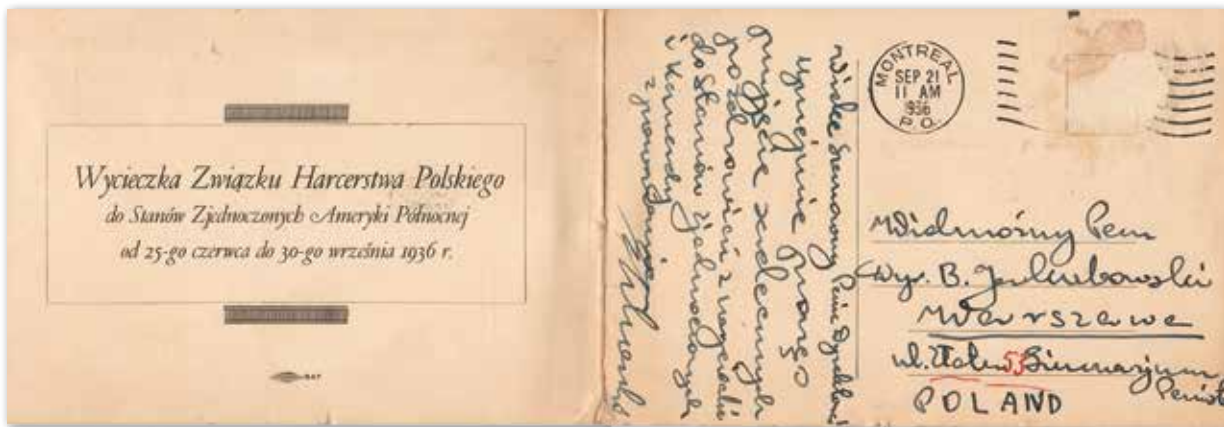 Wycieczka Związku Harcerstwa Polskiego
do Stanów Zjednoczonych Ameryki Północnej
od 25-go czerwca do 30-go września 1936 r.
Wielce Szanowny Panie
uprzejmie proszę
przyjęcie serdecznych
pozdrowień z wycieczki
do Stanów Zjednoczonych
i Kanady
z poważaniem
MONTREAL
SEP 21
11 AM
1936
P.Q.
Wielmożny Pan
Dyr. B. Jakubowski
Warszawa
ul. Złota 53 Gimnazjum
POLAND